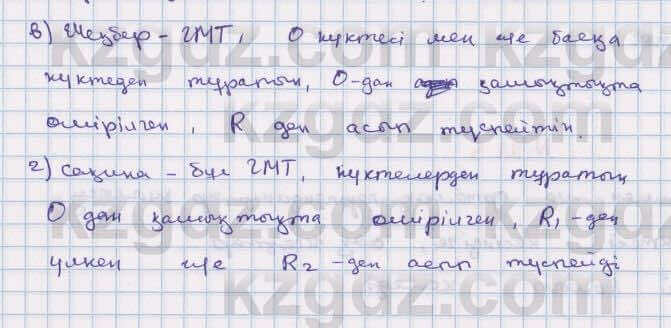 в) Шеңбер - ГМТ, О нүктесі мен ше басқа
нүктеден тұратын, О-дан қашықтықта
өмірілген, R ден асып түспейтін.
г) сақина - бұл ГМТ, нүктелерден тұратын
О дан қашықтықта өмірілген, R₁-ден
үлкен ше R₂-ден асып түспейді